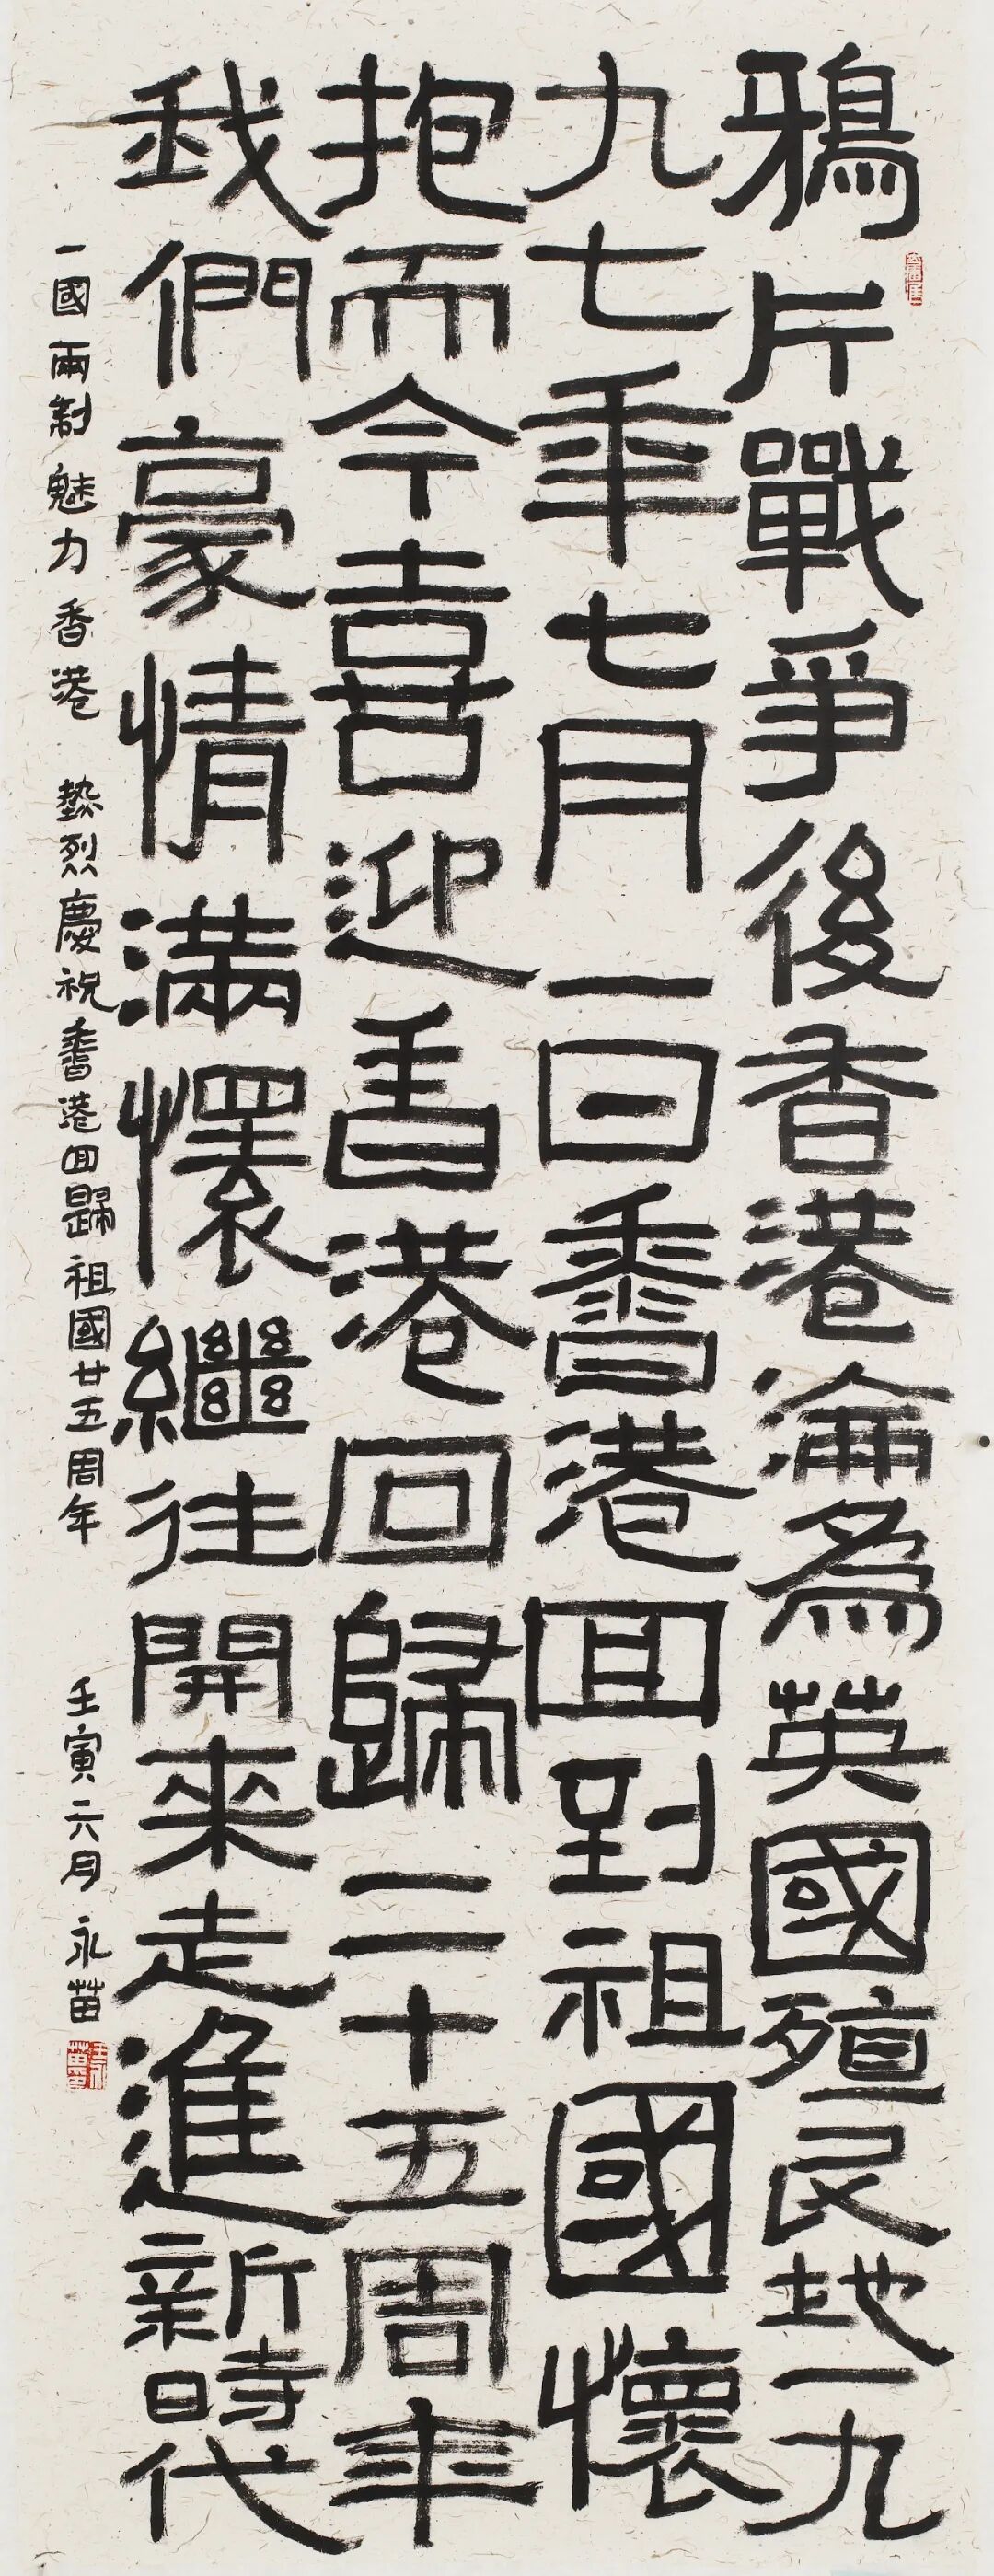 鴉片戰爭後香港淪為英國殖民地一九
九七年七月一日香港回到祖國懷
抱而今喜迎香港回歸二十五周年
我們豪情滿懷繼往開來走進新時代
一國兩制魅力香港 熱烈慶祝香港回歸祖國廿五周年 壬寅六月永苗